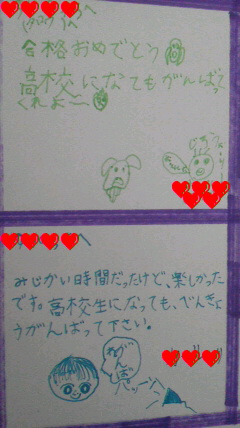 へ
合格おめでとう
高校になてもがんばっ
くれよ〜
へ
みじかい時間だったけど、楽しかった
です。高校生になっても、べんきょ
うがんばって下さい。
がんば